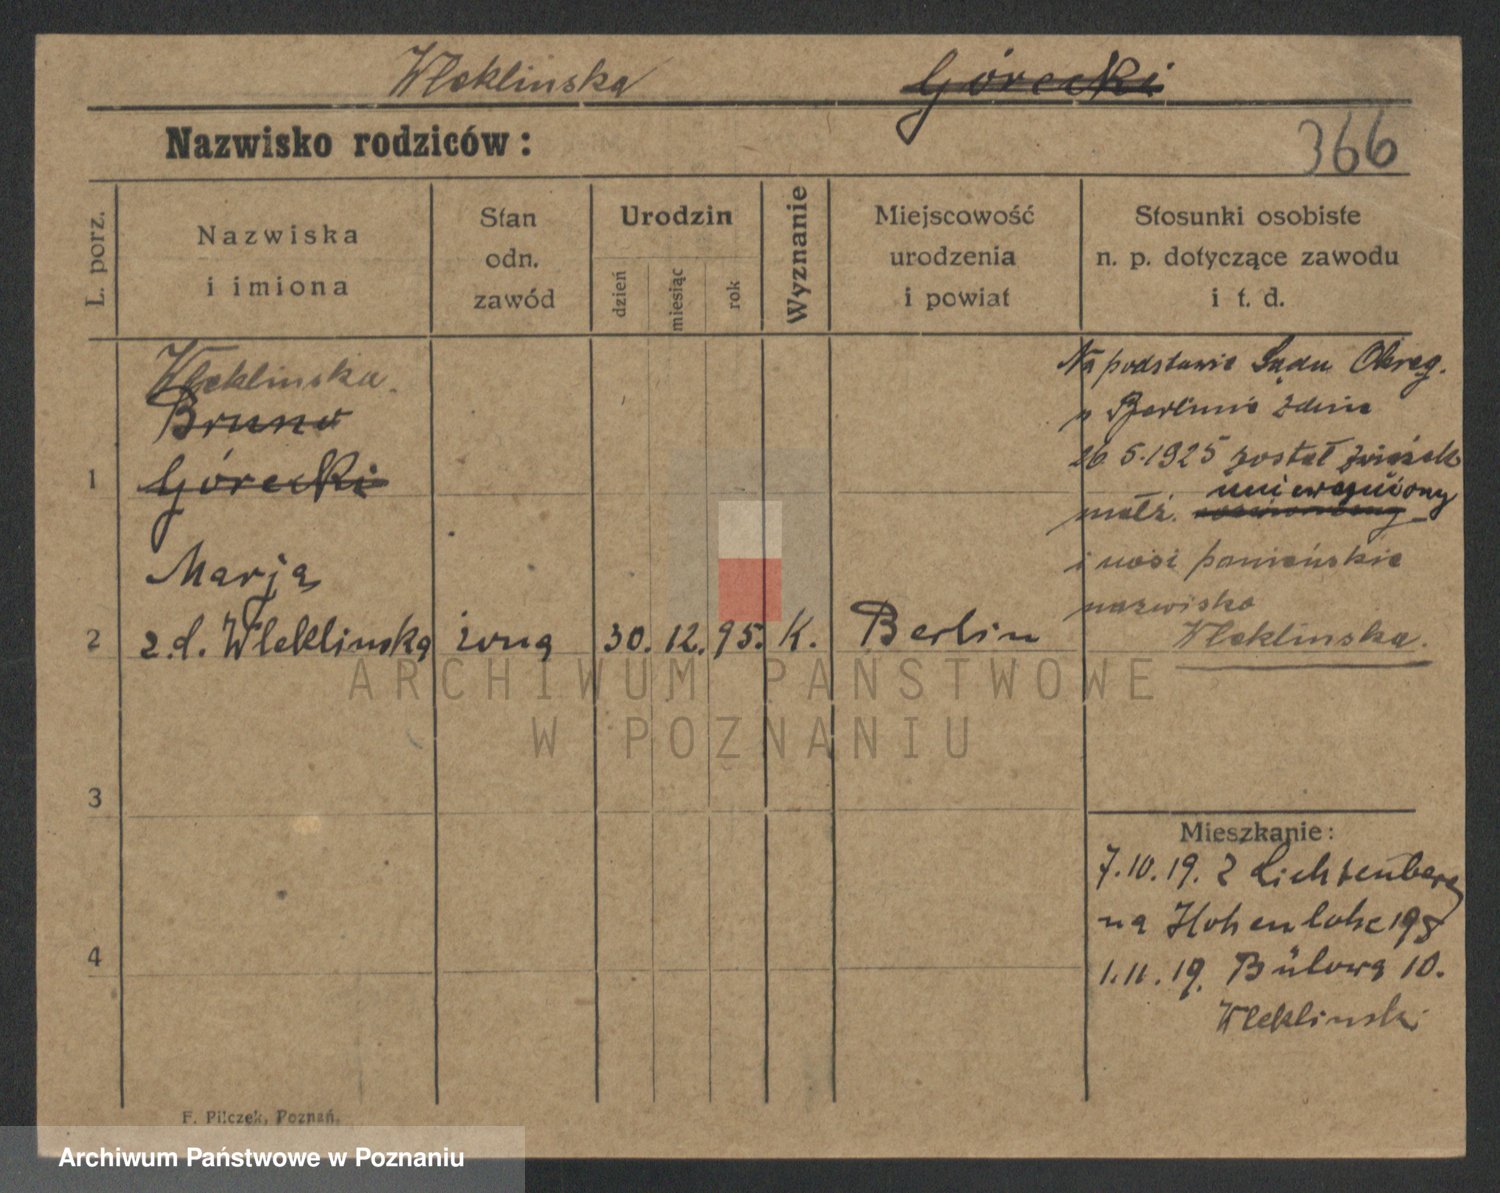 Wleklinska Górecki
Nazwisko rodziców:
366
L. porz.
Nazwiska
i imiona
Stan
odn.
zawód
Urodzin
dzień
miesiąc
rok
Wyznanie
Miejscowość
urodzenia
i powiat
Stosunki osobiste
n. p. dotyczące zawodu
i t. d.
Wleklinska.
Bruno
1 Górecki
Marja
2 z.d. Wleklinska żona 30. 12. 95. K. Berlin
Na podstawie Sądu Okręg.
w Berlinie z dnia
26 5.1925 został związek
unieważniony
małż.
i nosi panieńskie
nazwisko
Wleklinska.
3
4
Mieszkanie:
7.10.19. z Lichtenberg
na Hohenlohe 198
1.11.19. Bülowa 10.
Wleklinski
F. Pilczek, Poznań.
ARCHIWUM PAŃSTWOWE
W POZNANIU
Archiwum Państwowe w Poznaniu